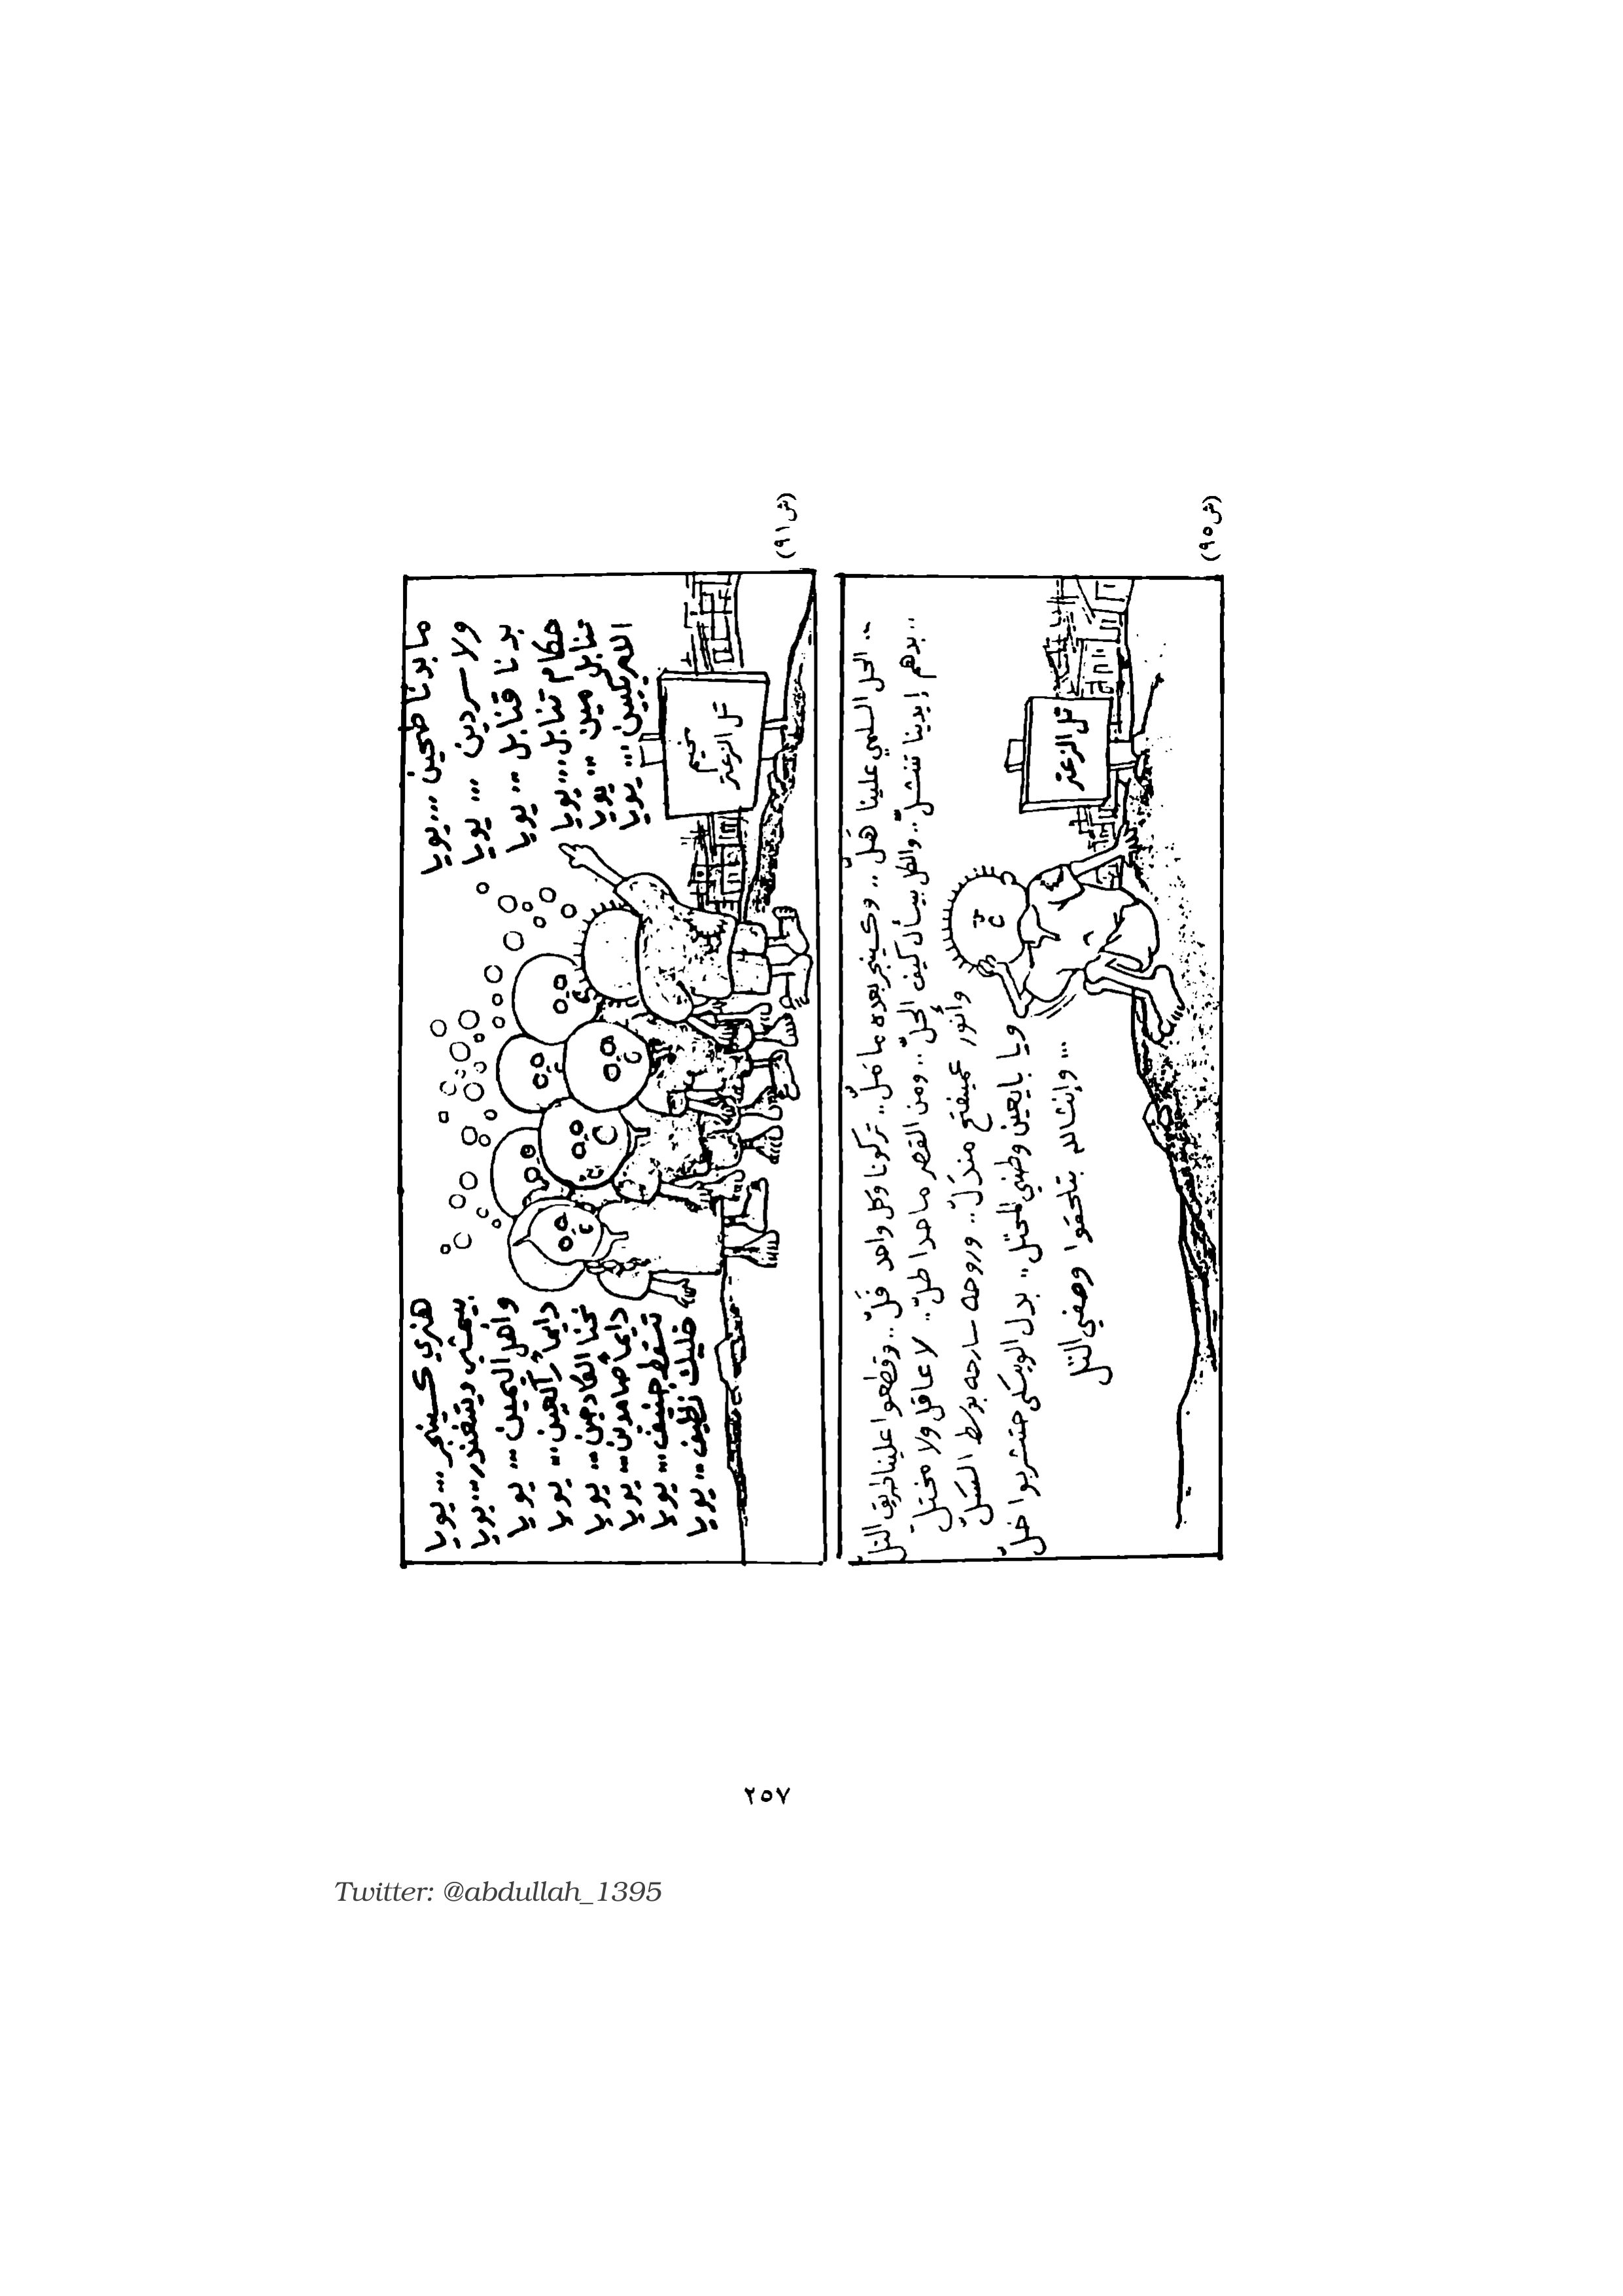 (ش ٩١)
ما بدنا طحين ... يويا
ولا سردين ... يويا
بدنا قنابل ... يويا
حكام تنابل ... يويا
تنابل مين ... يويا
الامريكيين ... يويا
مخيم
تل الزعتر
هنري كيسنجر ... يويا
بيمشي وبيتغندر ... يويا
واهل اليمين ... يويا
دايماً راكعين ... يويا
نحنا الكادحين ... يويا
دايماً صامدين ... يويا
تسقط جنيف ... يويا
خليك نظيف ... يويا
(ش ٩٥)
.. الحل السلمي علينا هَلّ .. وكيسنجر بعده ما مَلّ .. تركونا وكل واحد فَلّ .. وقطعوا علينا طريق التلّ
.. بدهم إيدينا تنشلّ .. والكل بيسأل كيف الحلّ .. ومن القصر ما حدا طلّ .. لا عاقل ولا مختلّ
وأنور عميفتح مندَلّ .. وروحه سارحه بوسط السَلّ
ويا بايعين وطني المحتل .. بدل الويسكي حتشربوا خلّ
... وإنشالله بتلحقوا وصفي التل
تل الزعتر
٢٥٧
Twitter: @abdullah_1395